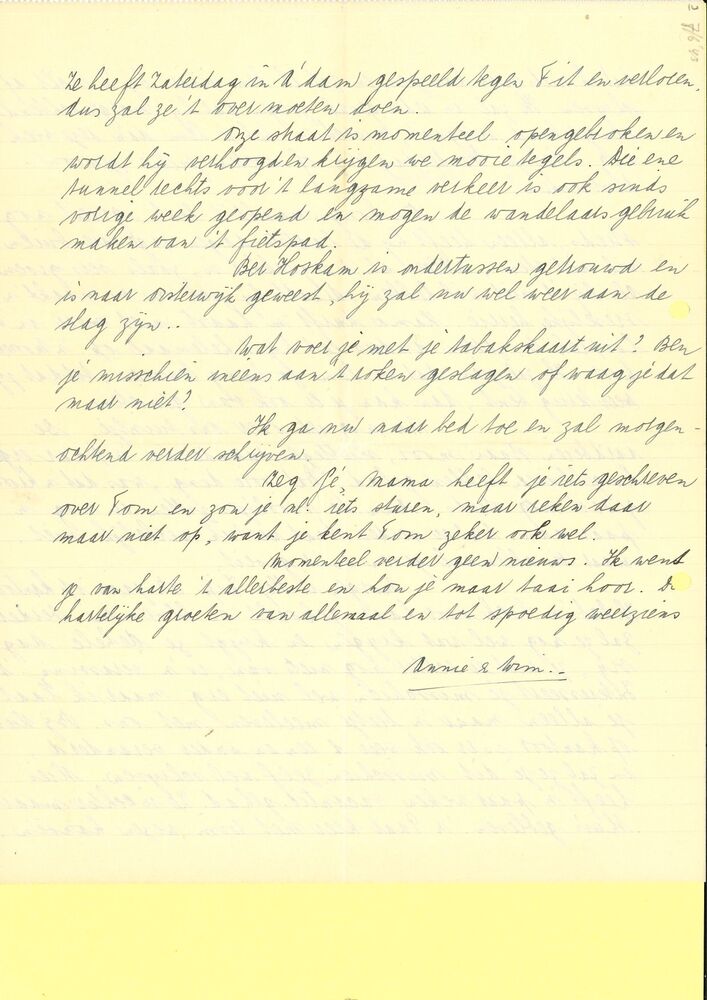 Ze heeft Zaterdag in A'dam gespeeld tegen Fit en verloren,
dus zal ze 't over moeten doen.
Onze straat is momenteel opengebroken en
wordt hij verhoogd en krijgen we mooie tegels. Die ene
tunnel rechts voor 't langzame verkeer is ook sinds
vorige week geopend en mogen de wandelaars gebruik
maken van 't fietspad.
Ber Hoskam is ondertussen getrouwd en
is naar Oisterwijk geweest, hij zal nu wel weer aan de
slag zijn..
Wat voer je met je tabakskaart uit? Ben
je misschien ineens aan 't roken geslagen of waag je dat
maar niet?
Ik ga nu naar bed toe en zal morgen-
ochtend verder schrijven.
Zeg Pé, Mama heeft je iets geschreven
over Tom en zou je nl. iets sturen, maar reken daar
maar niet op, want je kent Tom zeker ook wel.
Momenteel verder geen nieuws. Ik wens
je van harte 't allerbeste en hou je maar taai hoor. De
hartelijke groeten van allemaal en tot spoedig weerziens
Annie & Wim..